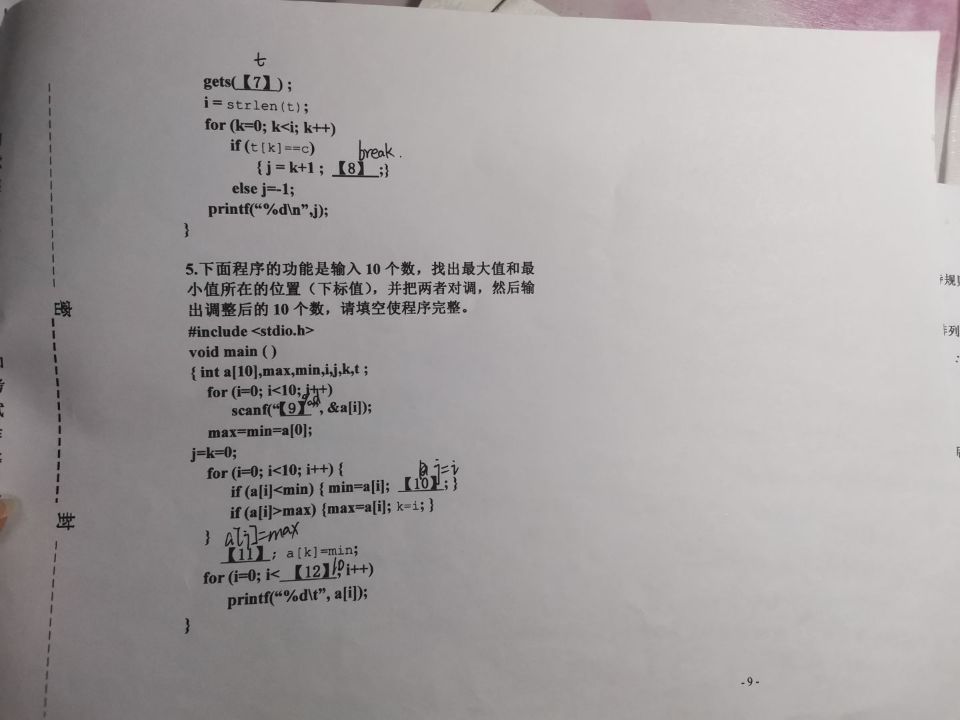 t
gets(【7】);
i = strlen(t);
for (k=0; k<i; k++)
if (t[k]==c) break.
{ j = k+1 ; 【8】 ;}
else j=-1;
printf(“%d\n”,j);
}
5.下面程序的功能是输入 10 个数，找出最大值和最
小值所在的位置（下标值），并把两者对调，然后输
出调整后的 10 个数，请填空使程序完整。
#include <stdio.h>
void main ( )
{ int a[10],max,min,i,j,k,t ;
for (i=0; i<10; j++)
scanf(“【9】”, &a[i]);
max=min=a[0];
j=k=0;
for (i=0; i<10; i++) { j=i
if (a[i]<min) { min=a[i]; 【10】; }
if (a[i]>max) {max=a[i]; k=i; }
} a[j]=max
【11】; a[k]=min;
for (i=0; i< 【12】; i++) 10
printf(“%d\t”, a[i]);
}
密
封
- 9 -